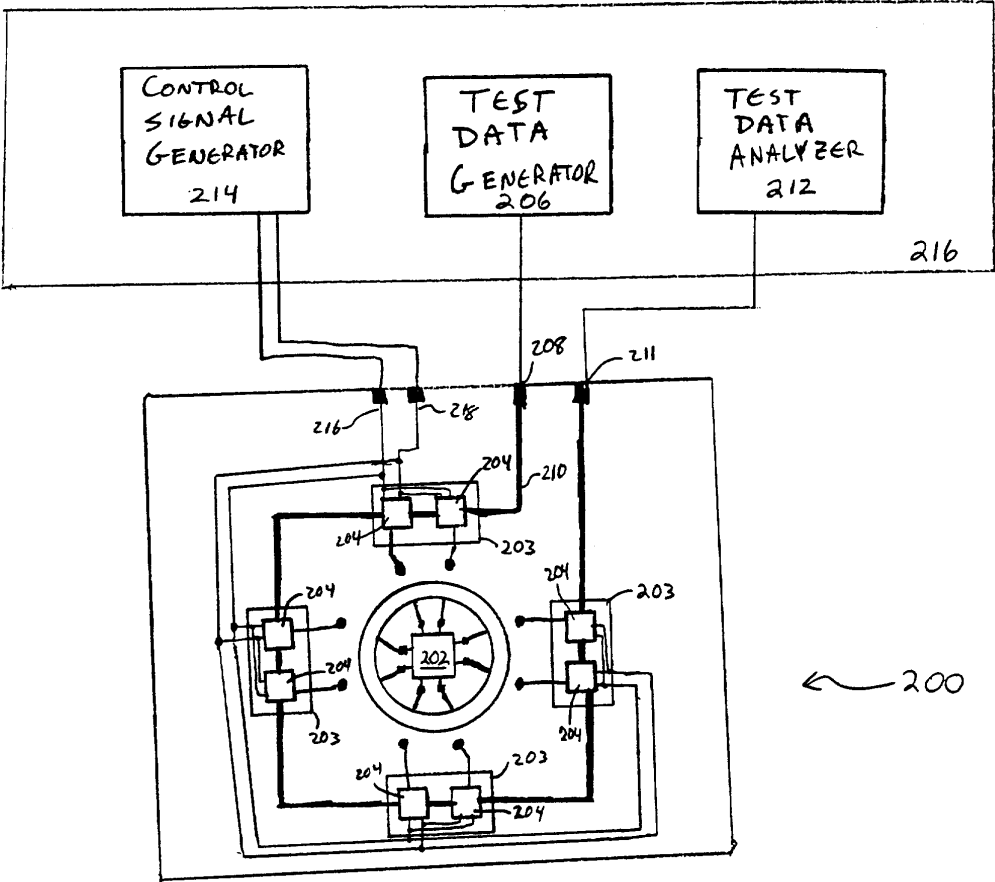 CONTROL
SIGNAL
GENERATOR
214
TEST
DATA
GENERATOR
206
TEST
DATA
ANALYZER
212
216
208
211
216
218
204
210
204
203
204
203
204
204
202
204
203
204
200
204
203
204